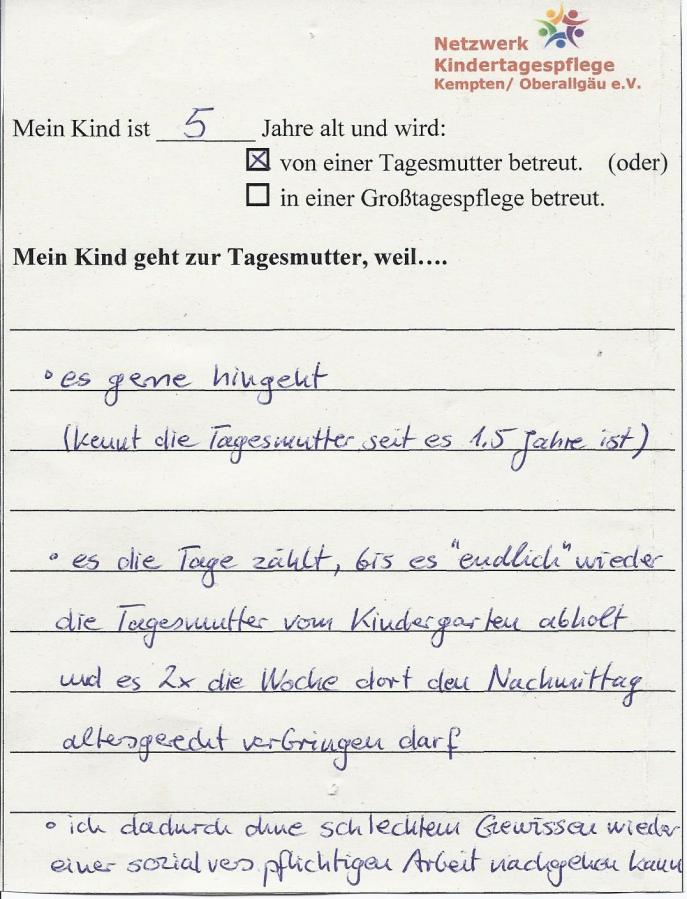 Netzwerk
Kindertagespflege
Kempten/ Oberallgäu e.V.
Mein Kind ist 5 Jahre alt und wird:
☒ von einer Tagesmutter betreut. (oder)
☐ in einer Großtagespflege betreut.
Mein Kind geht zur Tagesmutter, weil….
° es gerne hingeht
(kennt die Tagesmutter seit es 1.5 Jahre ist)
° es die Tage zählt, bis es "endlich" wieder
die Tagesmutter vom Kindergarten abholt
und es 2x die Woche dort den Nachmittag
altersgerecht verbringen darf
° ich dadurch ohne schlechtem Gewissen wieder
einer sozialvers.pflichtigen Arbeit nachgehen kann